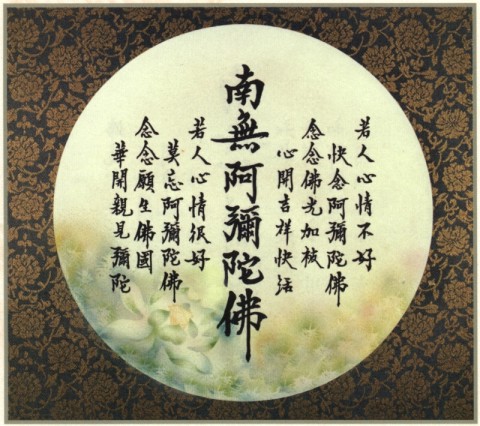 若人心情不好
快念阿彌陀佛
念念佛光加被
心開吉祥快活
南無阿彌陀佛
若人心情很好
莫忘阿彌陀佛
念念願生佛國
華開親見彌陀